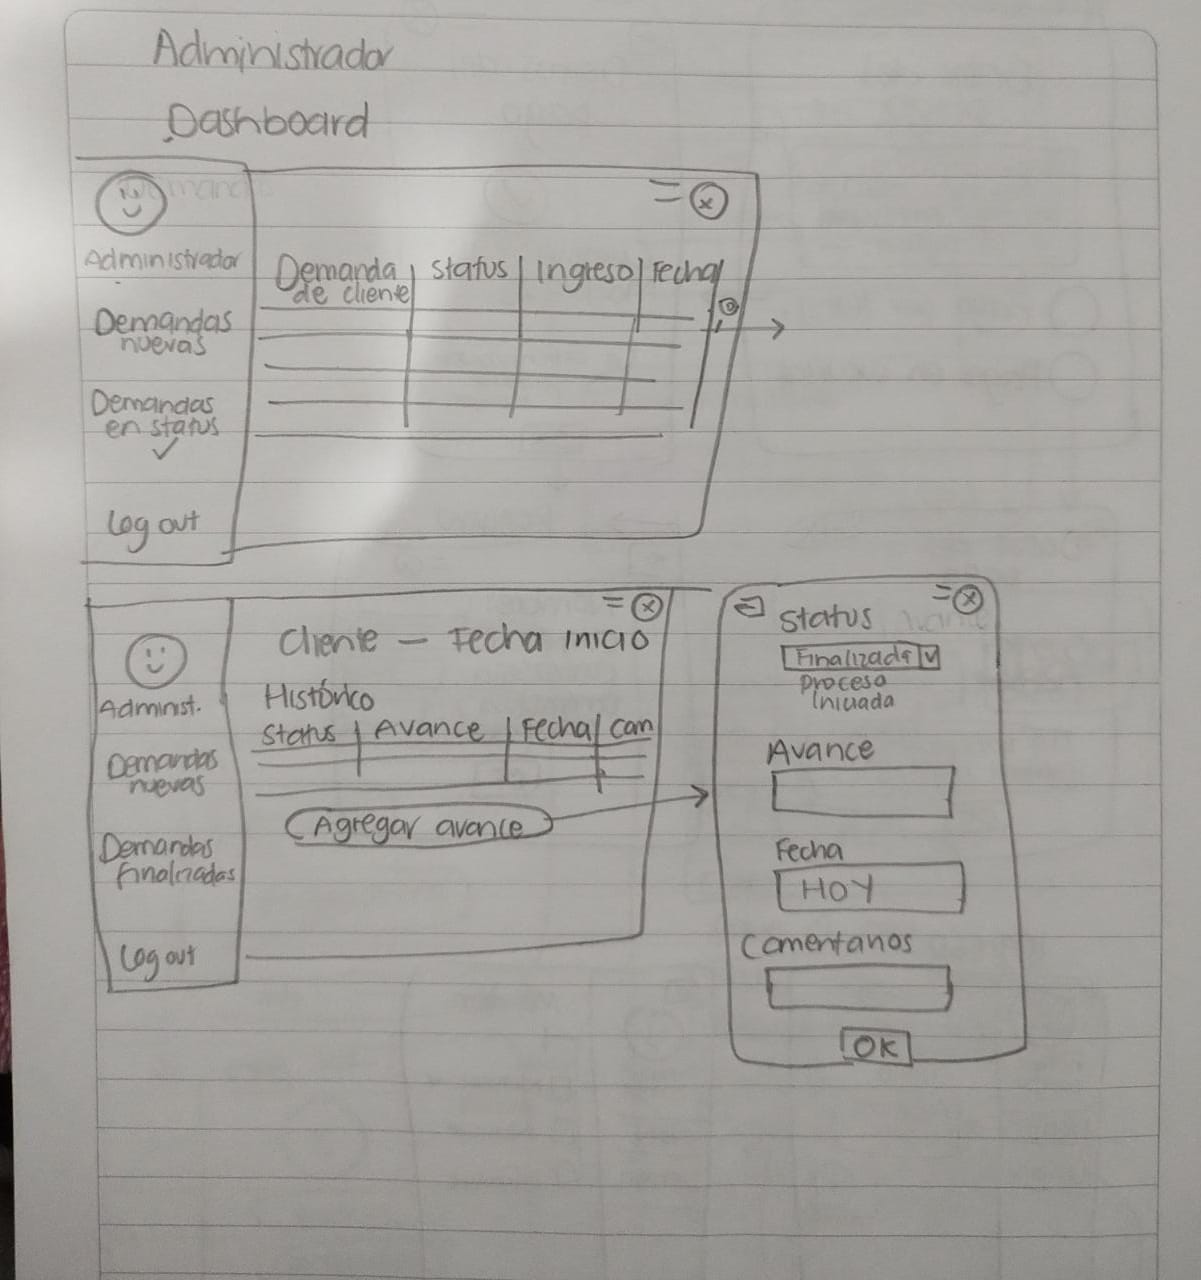 Administrador
Dashboard
Administrador
Demandas
nuevas
Demandas
en status
Log out
Demanda
de cliente
Status
Ingreso
Fecha
Administ.
Demandas
nuevas
Demandas
finalizadas
Log out
Cliente - Fecha inicio
Histórico
Status
Avance
Fecha
Com
Agregar avance
Status
Finalizada
Proceso
Iniciada
Avance
Fecha
HOY
Comentarios
OK